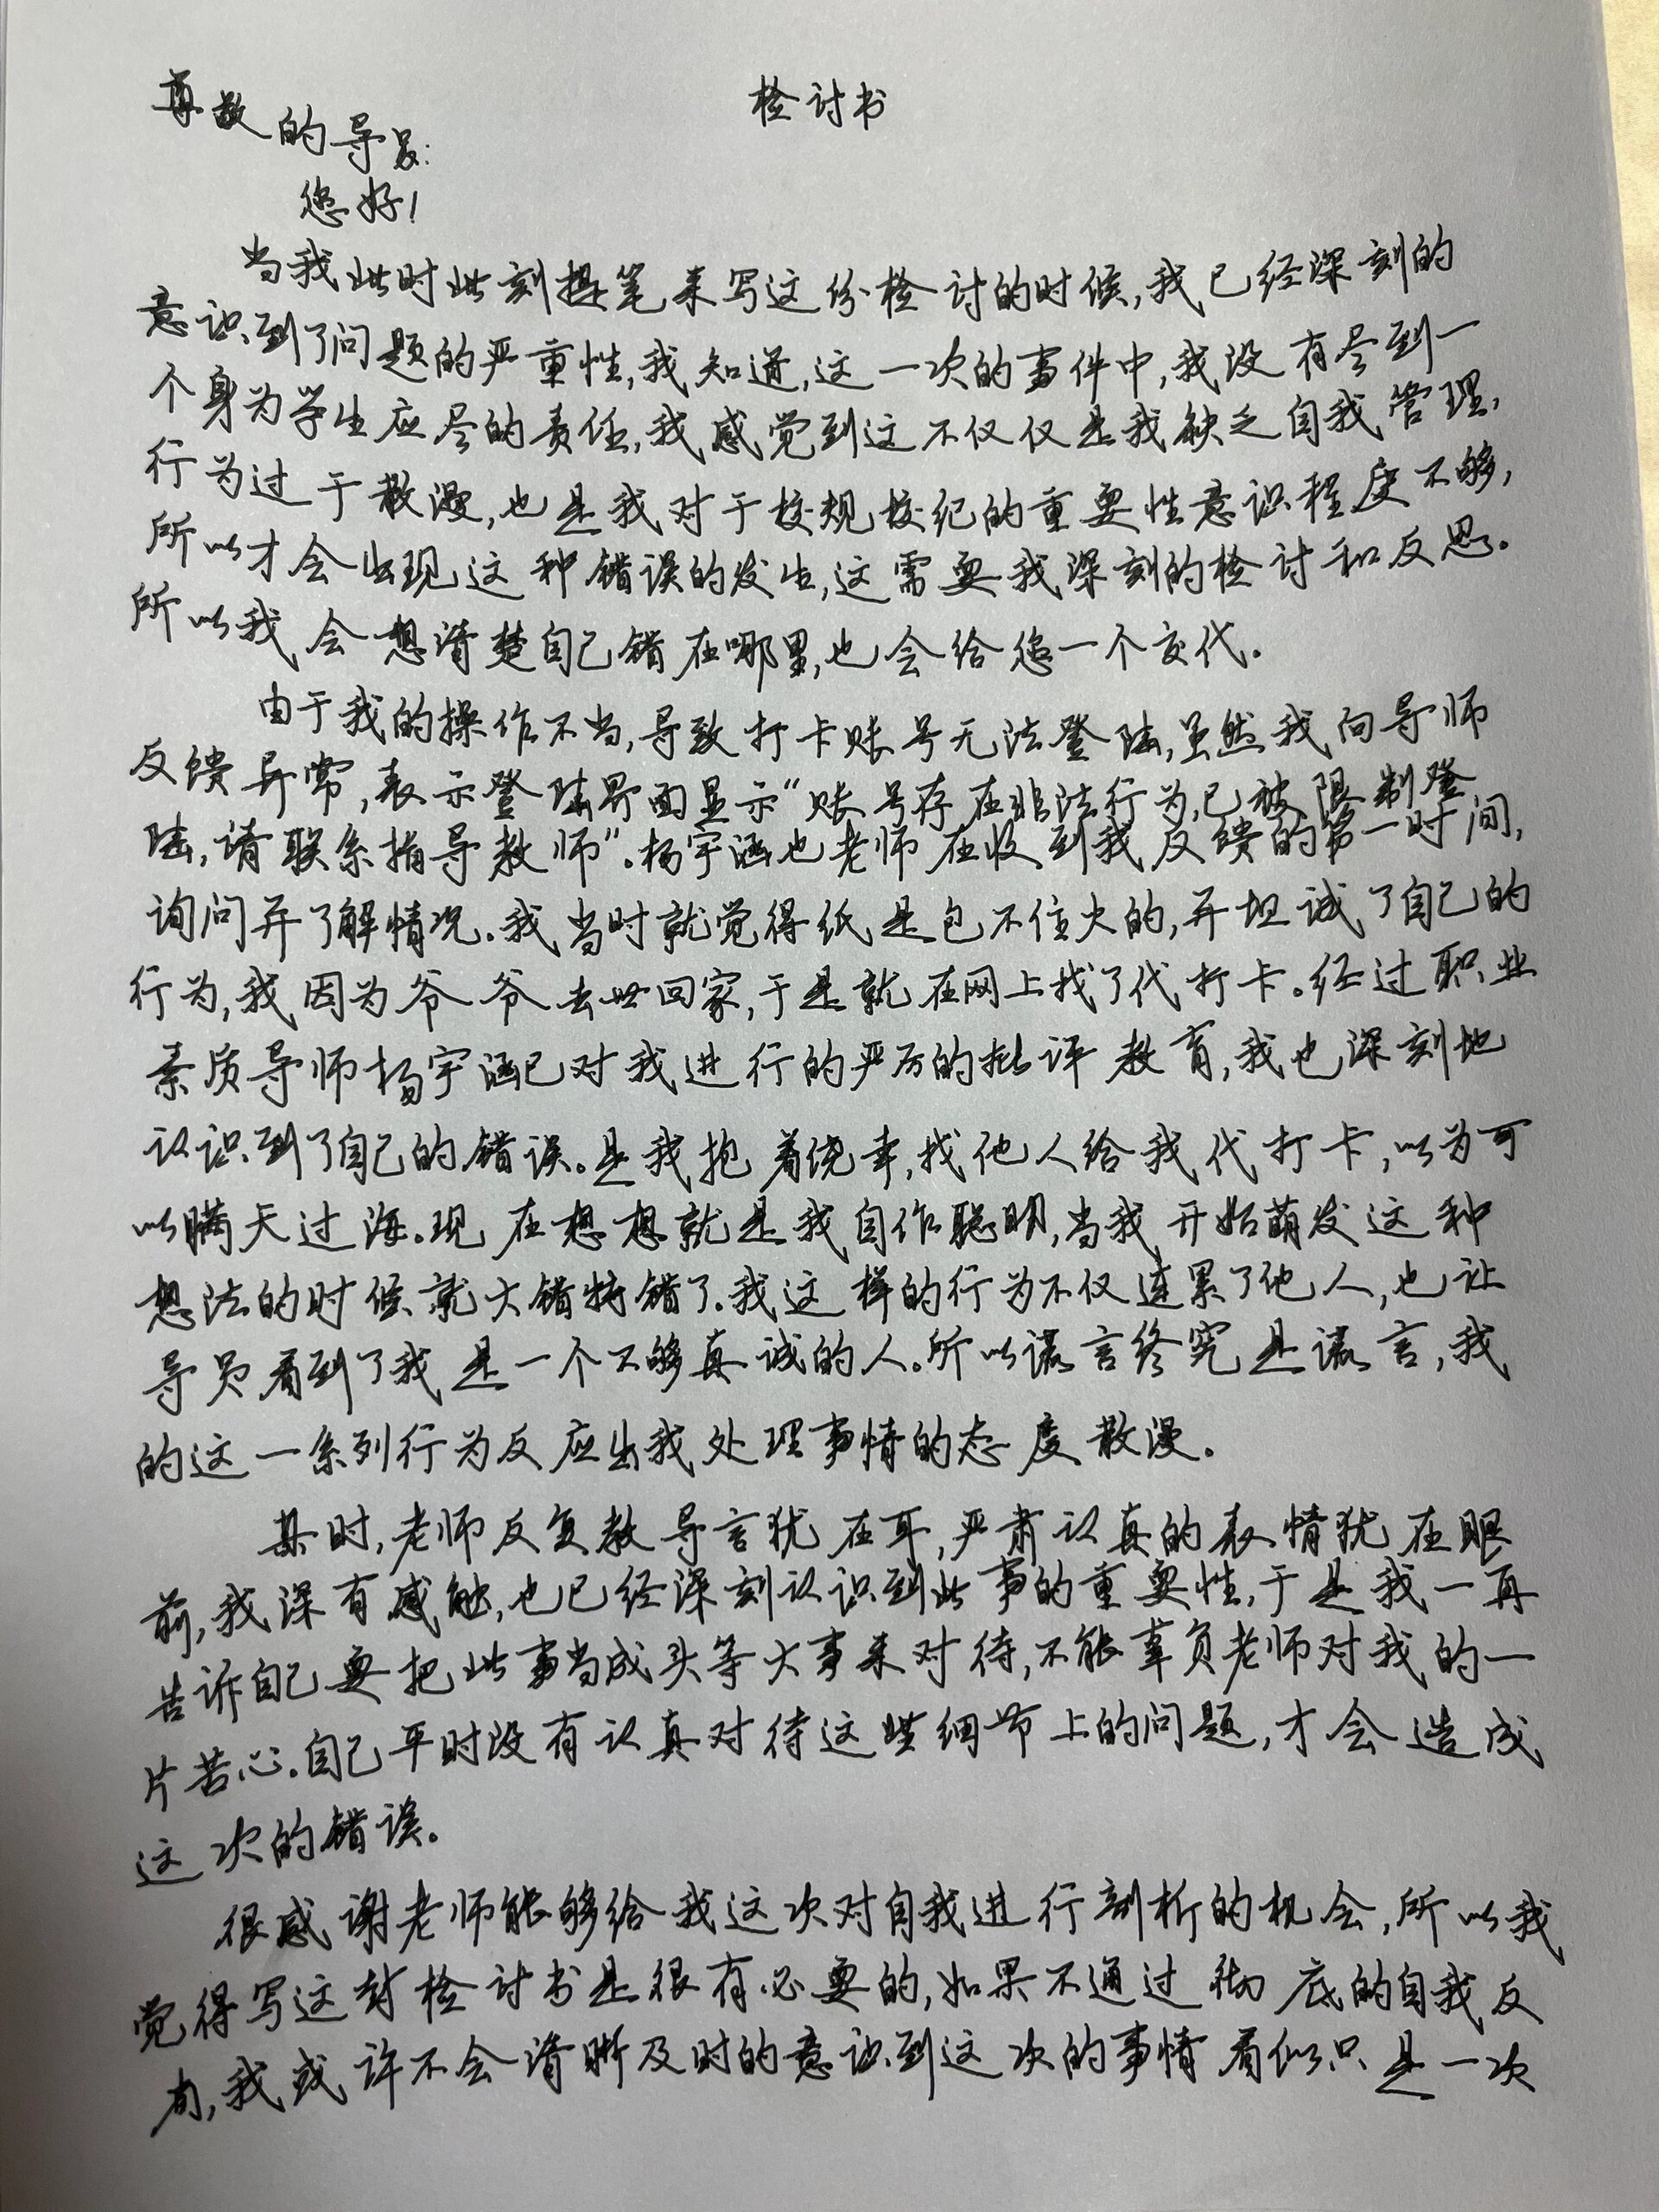 检讨书
尊敬的导员:
您好!
当我此时此刻提笔来写这份检讨的时候,我已经深刻的
意识到了问题的严重性,我知道,这一次的事件中,我没有尽到一
个身为学生应尽的责任,我感觉到这不仅仅是我缺乏自我管理,
行为过于散漫,也是我对于校规校纪的重要性意识程度不够,
所以才会出现这种错误的发生,这需要我深刻的检讨和反思。
所以我会想清楚自己错在哪里,也会给您一个交代。
由于我的操作不当,导致打卡账号无法登陆,虽然我向导师
反馈异常,表示登陆界面显示“账号存在非法行为,已被限制登
陆,请联系指导教师”。杨宇涵也老师在收到我反馈的第一时间,
询问并了解情况。我当时就觉得纸是包不住火的,并坦诚了自己的
行为,我因为爷爷去世回家,于是就在网上找了代打卡。经过职业
素质导师杨宇涵已对我进行的严厉的批评教育,我也深刻地
认识到了自己的错误。是我抱着侥幸,找他人给我代打卡,以为可
以瞒天过海。现在想想就是我自作聪明,当我开始萌发这种
想法的时候就大错特错了。我这样的行为不仅连累了他人,也让
导员看到了我是一个不够真诚的人。所以谎言终究是谎言,我
的这一系列行为反应出我处理事情的态度散漫。
其时,老师反复教导言犹在耳,严肃认真的表情犹在眼
前,我深有感触,也已经深刻认识到此事的重要性,于是我一再
告诉自己要把此事当成头等大事来对待,不能辜负老师对我的一
片苦心。自己平时没有认真对待这些细节上的问题,才会造成
这次的错误。
很感谢老师能够给我这次对自我进行剖析的机会,所以我
觉得写这封检讨书是很有必要的,如果不通过彻底的自我反
省,我或许不会清晰及时的意识到这次的事情看似只是一次